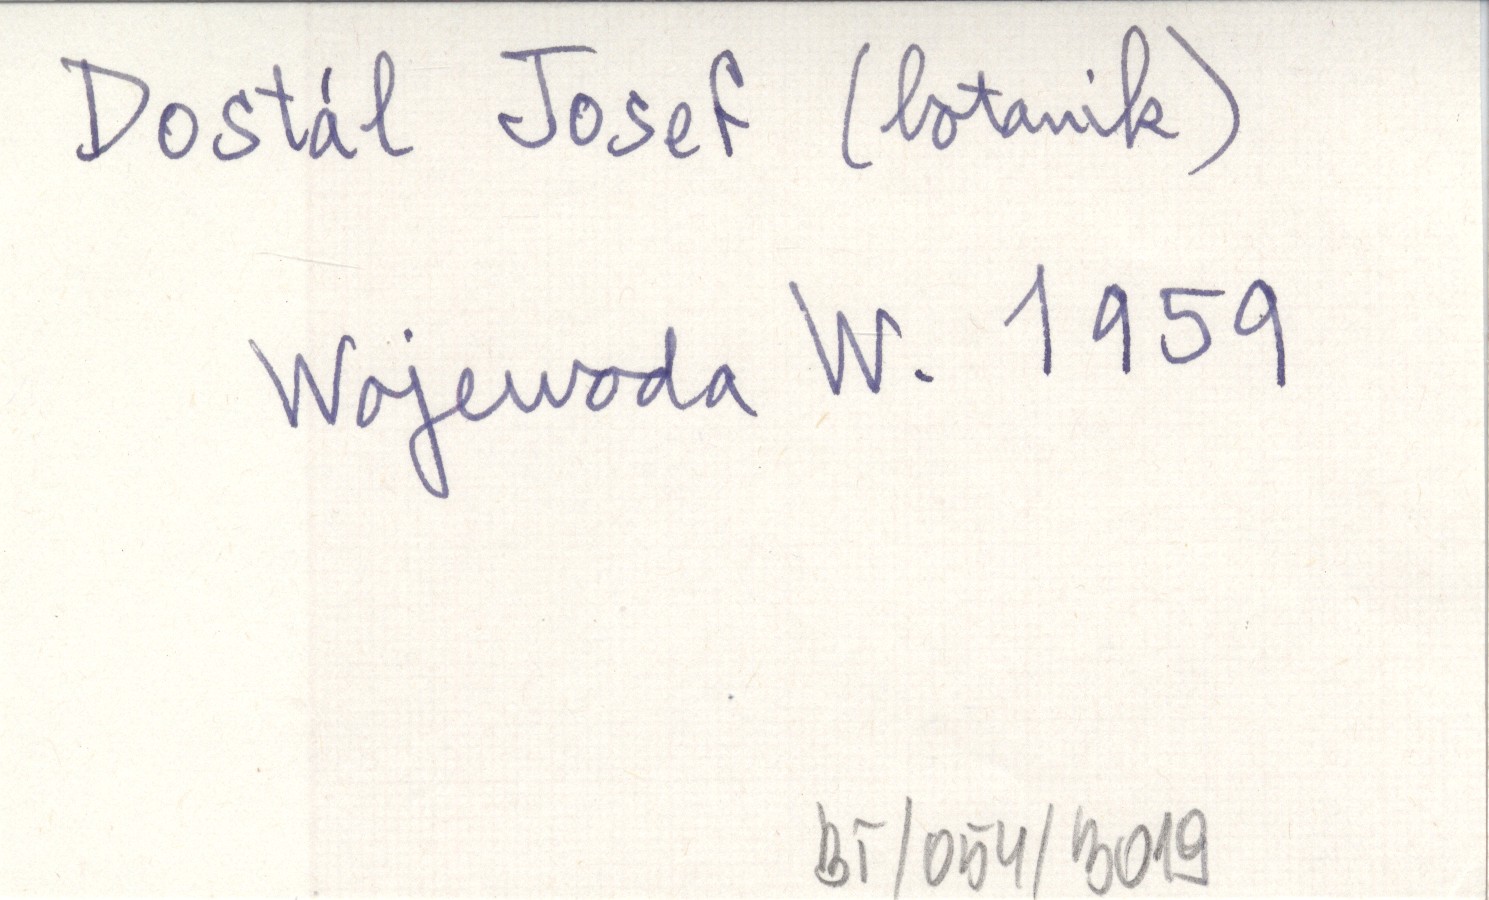 Dostál Josef (botanik)
Wojewoda W. 1959
BT/054/3019